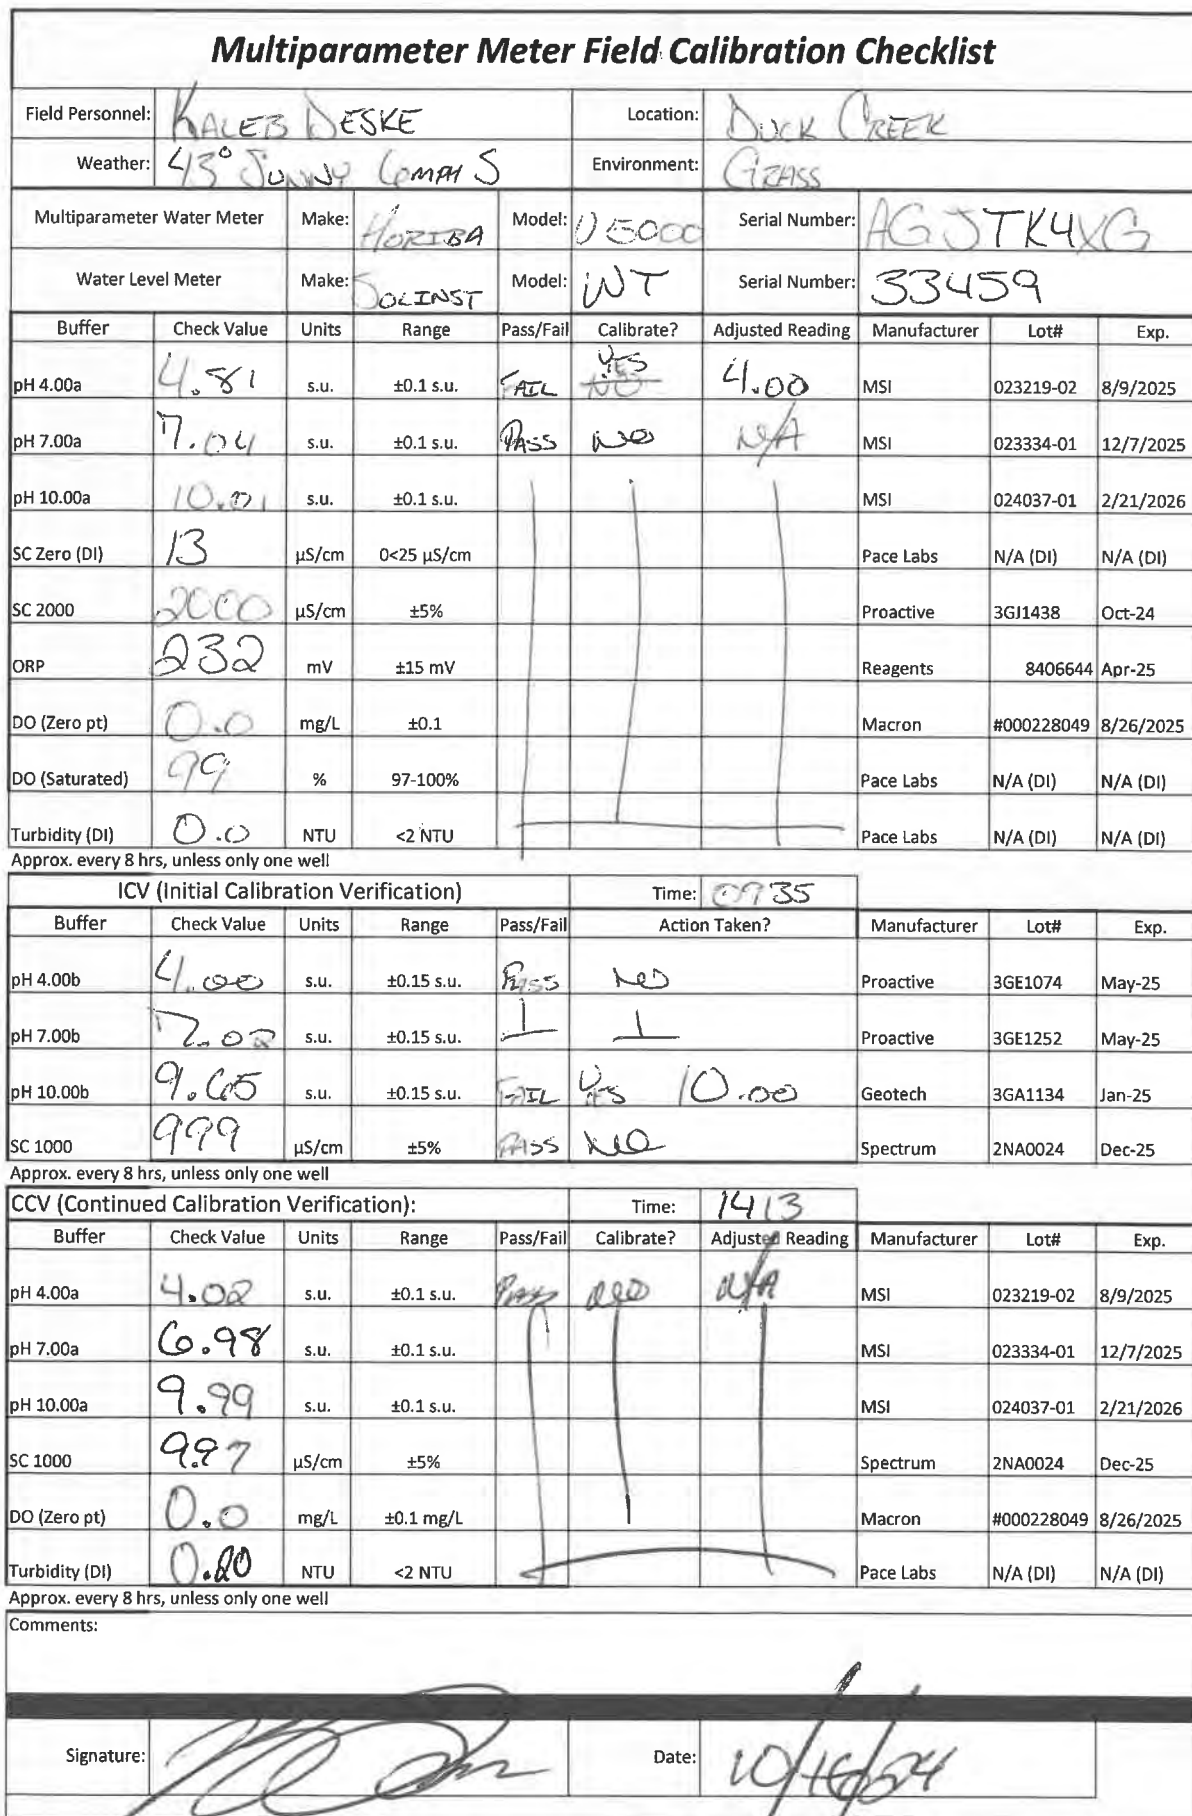 Multiparameter Meter Field Calibration Checklist
Field Personnel: KALEB DESKE Location: DUCK CREEK
Weather: 43° SUNNY 6MPH S Environment: GRASS
Multiparameter Water Meter Make: HORIBA Model: U5000 Serial Number: AGJTK4XG
Water Level Meter Make: SOLINST Model: WT Serial Number: 33459
Buffer Check Value Units Range Pass/Fail Calibrate? Adjusted Reading Manufacturer Lot# Exp.
pH 4.00a 4.81 s.u. ±0.1 s.u. FAIL YES NO 4.00 MSI 023219-02 8/9/2025
pH 7.00a 7.04 s.u. ±0.1 s.u. PASS NO N/A MSI 023334-01 12/7/2025
pH 10.00a 10.01 s.u. ±0.1 s.u. MSI 024037-01 2/21/2026
SC Zero (DI) 13 µS/cm 0<25 µS/cm Pace Labs N/A (DI) N/A (DI)
SC 2000 2000 µS/cm ±5% Proactive 3GJ1438 Oct-24
ORP 232 mV ±15 mV Reagents 8406644 Apr-25
DO (Zero pt) 0.0 mg/L ±0.1 Macron #000228049 8/26/2025
DO (Saturated) 99 % 97-100% Pace Labs N/A (DI) N/A (DI)
Turbidity (DI) 0.0 NTU <2 NTU Pace Labs N/A (DI) N/A (DI)
Approx. every 8 hrs, unless only one well
ICV (Initial Calibration Verification) Time: 0735
Buffer Check Value Units Range Pass/Fail Action Taken? Manufacturer Lot# Exp.
pH 4.00b 4.00 s.u. ±0.15 s.u. PASS NO Proactive 3GE1074 May-25
pH 7.00b 7.02 s.u. ±0.15 s.u. Proactive 3GE1252 May-25
pH 10.00b 9.65 s.u. ±0.15 s.u. FAIL YES 10.00 Geotech 3GA1134 Jan-25
SC 1000 999 µS/cm ±5% PASS NO Spectrum 2NA0024 Dec-25
Approx. every 8 hrs, unless only one well
CCV (Continued Calibration Verification): Time: 1413
Buffer Check Value Units Range Pass/Fail Calibrate? Adjusted Reading Manufacturer Lot# Exp.
pH 4.00a 4.02 s.u. ±0.1 s.u. PASS NO N/A MSI 023219-02 8/9/2025
pH 7.00a 6.98 s.u. ±0.1 s.u. MSI 023334-01 12/7/2025
pH 10.00a 9.99 s.u. ±0.1 s.u. MSI 024037-01 2/21/2026
SC 1000 997 µS/cm ±5% Spectrum 2NA0024 Dec-25
DO (Zero pt) 0.0 mg/L ±0.1 mg/L Macron #000228049 8/26/2025
Turbidity (DI) NTU <2 NTU Pace Labs N/A (DI) N/A (DI)
Approx. every 8 hrs, unless only one well
Comments:
Signature: Date: 10/16/24